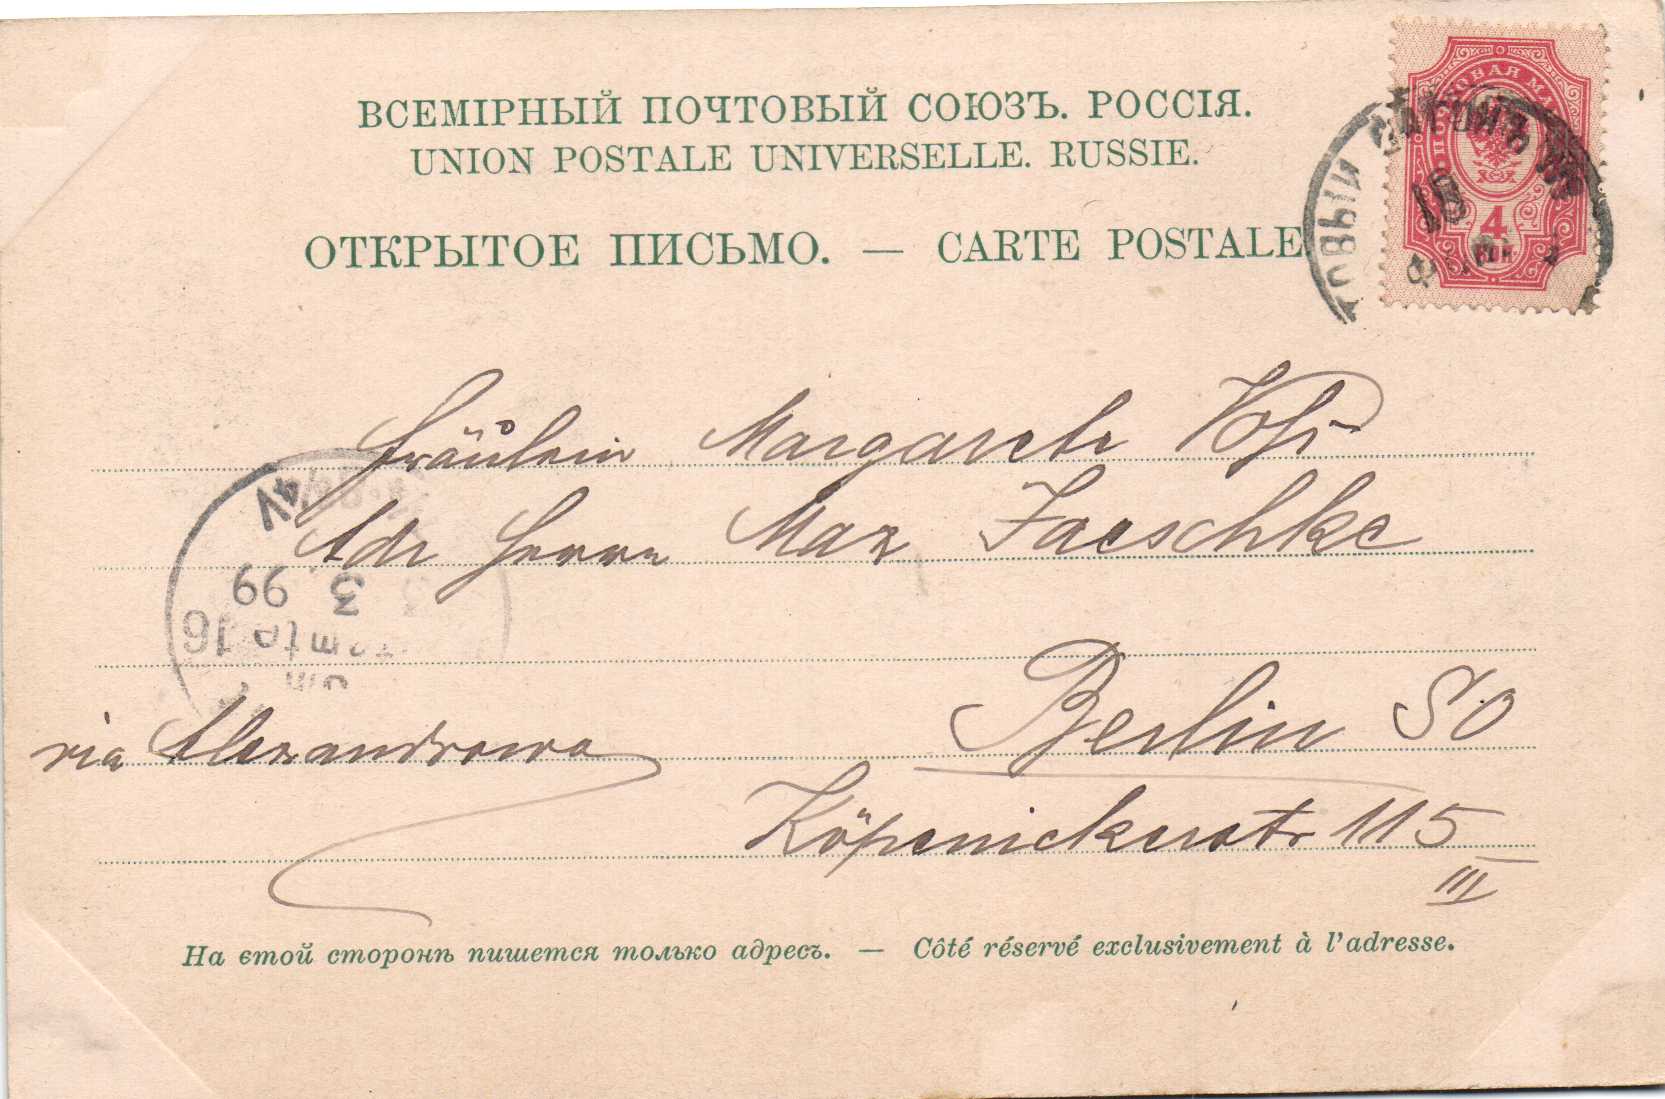 ВСЕМІРНЫЙ ПОЧТОВЫЙ СОЮЗЪ. РОССІЯ.
UNION POSTALE UNIVERSELLE. RUSSIE.
ОТКРЫТОЕ ПИСЬМО. — CARTE POSTALE
ПОЧТОВАЯ МАРКА
4
КОП.
ПОЧТОВЫЙ ВАГОНЪ
18
Fräulein Margarete
Adr Herrn Max Jaeschke
3. 99
16
via Alexandrowo
Berlin SO
Köpenickerstr 115
III
На етой сторонѣ пишется только адресъ. — Côté réservé exclusivement à l'adresse.